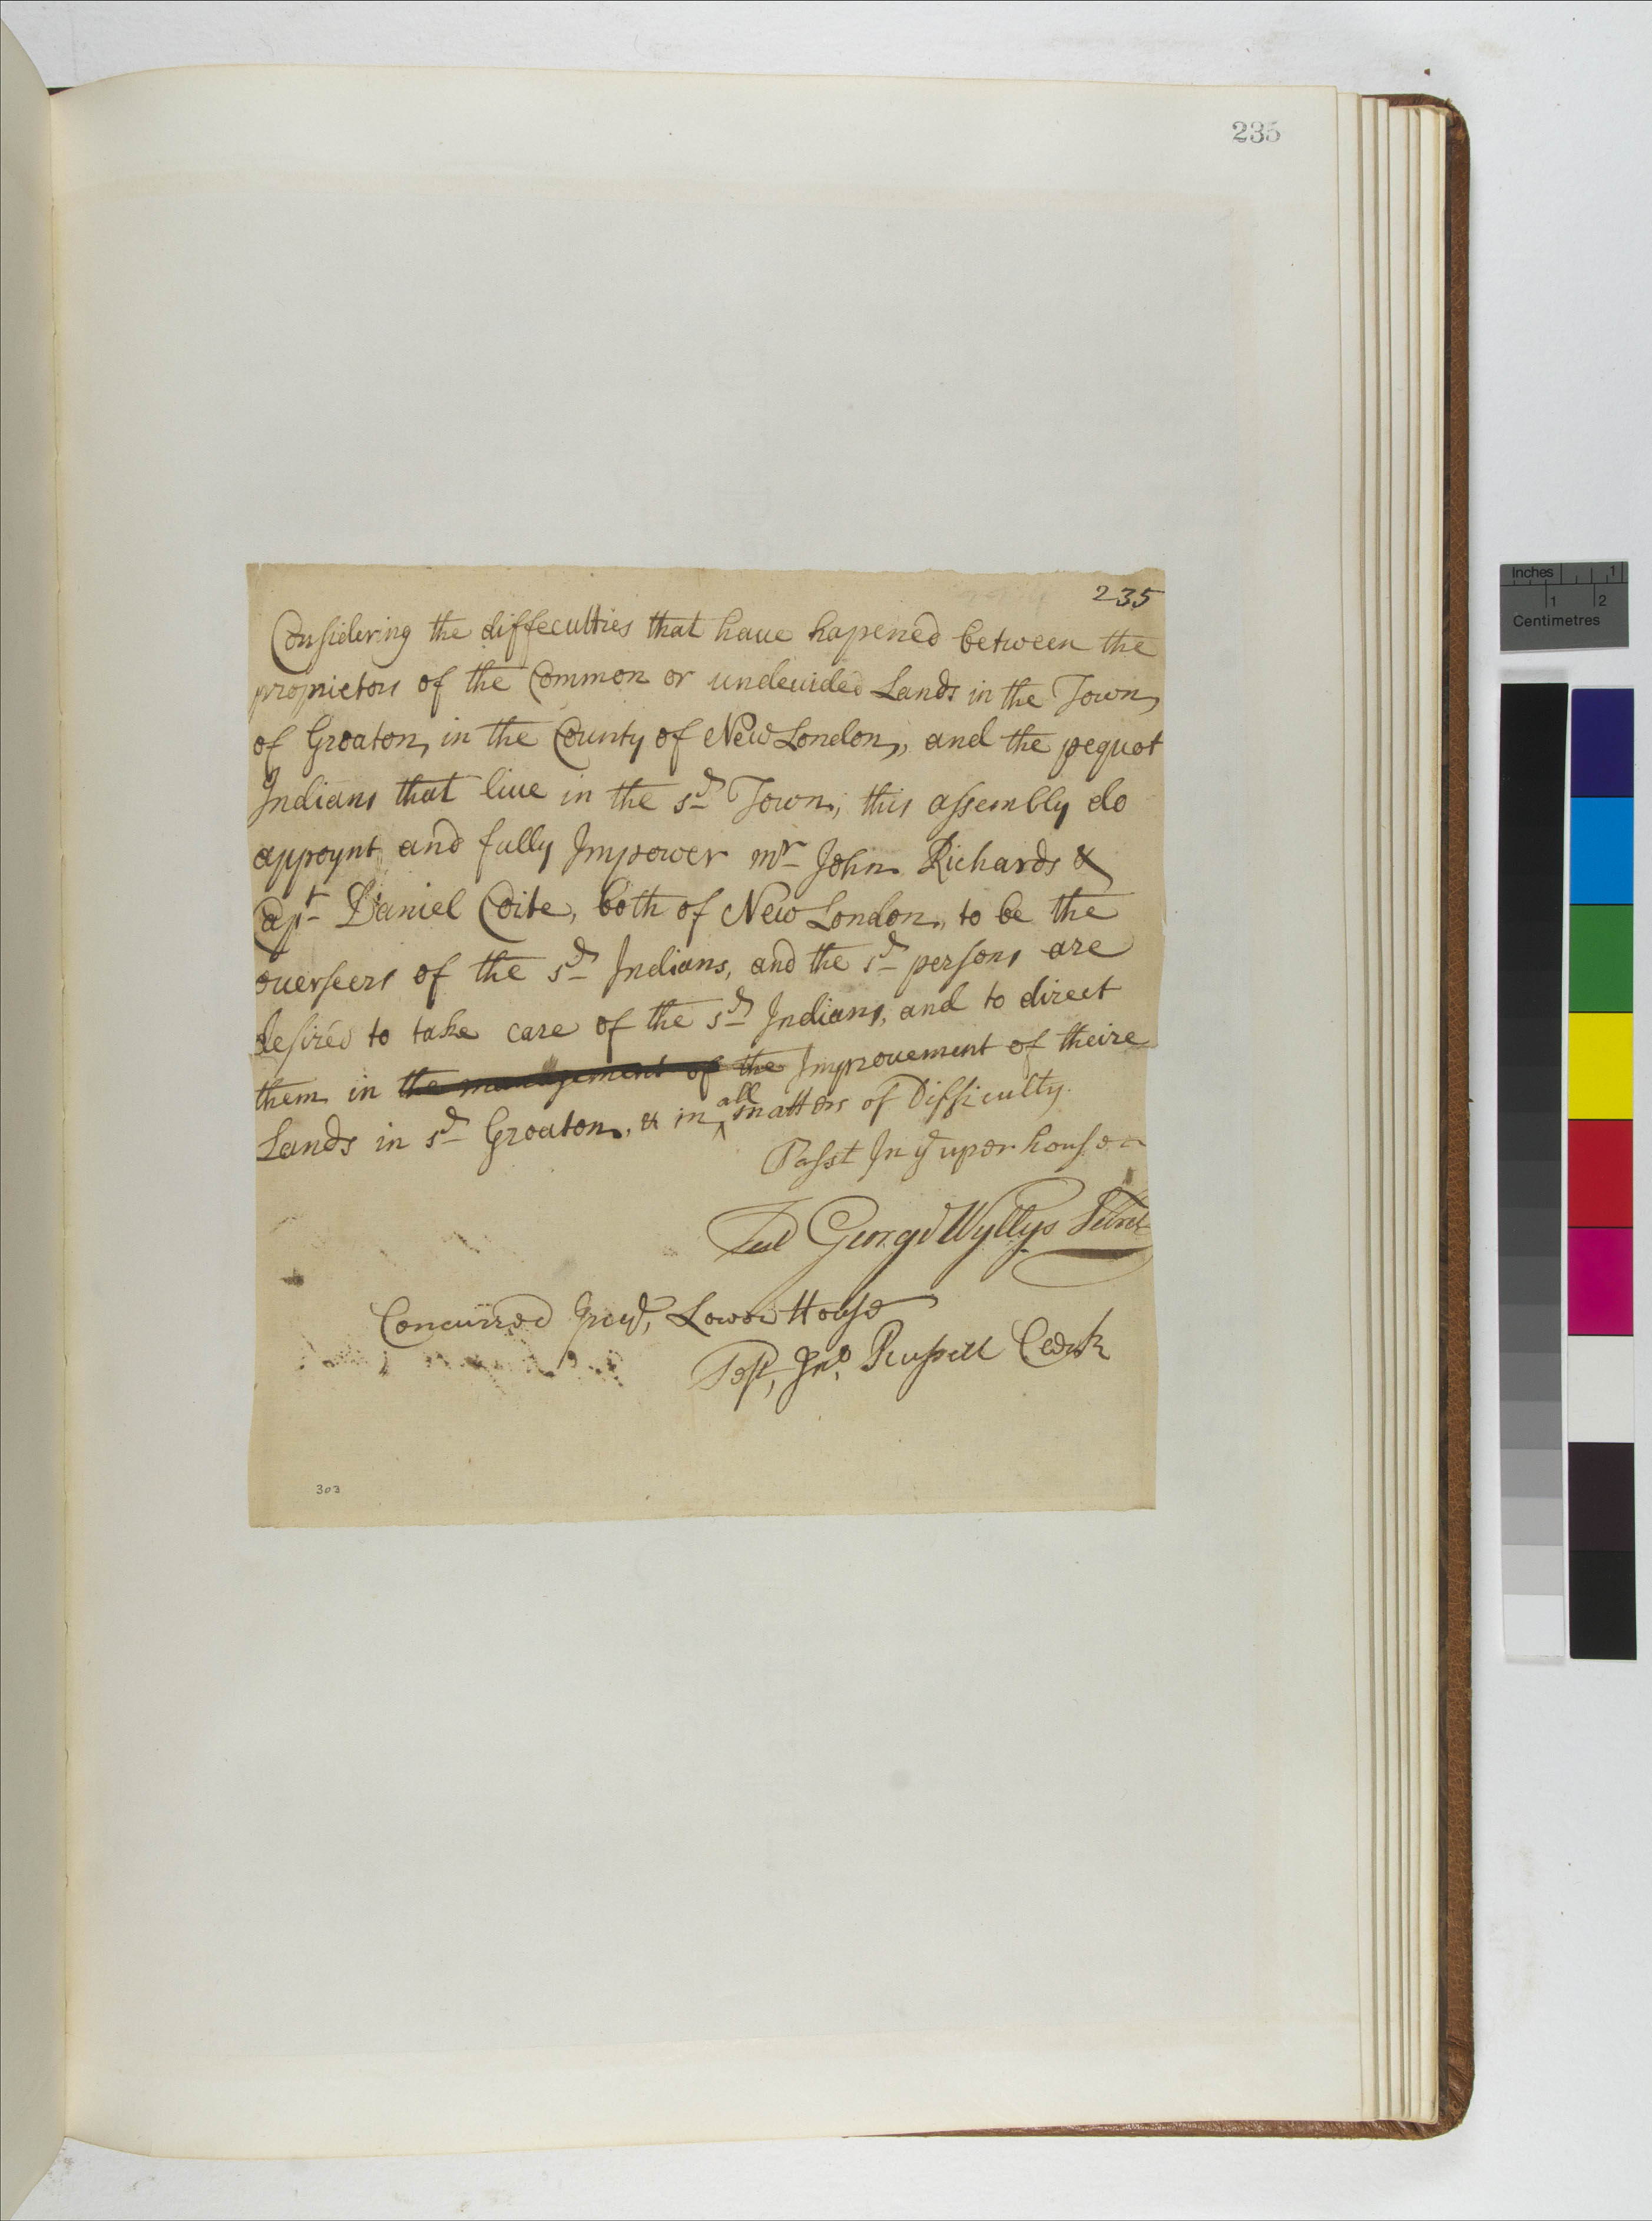 235
235
Considering the diffeculties that haue hapened between the
proprietors of the Common or undeuided Lands in the Town
of Groaton, in the County of New London, and the pequot
Indians that liue in the sd Town; this assembly do
appoynt and fully Impower mr John Richards &
Capt Daniel Coite, both of New London, to be the
ouerseers of the sd Indians, and the sd persons are
desired to take care of the sd Indians, and to direct
them in the management of the Improuement of theire
Lands in sd Groaton, & in all matters of Difficulty.
Passt In ye uper house
Test George Wyllys Secret
Concurred In ye, Lower House
Test, Jno, Russell Clerk
303
Inches 1
1 2
Centimetres